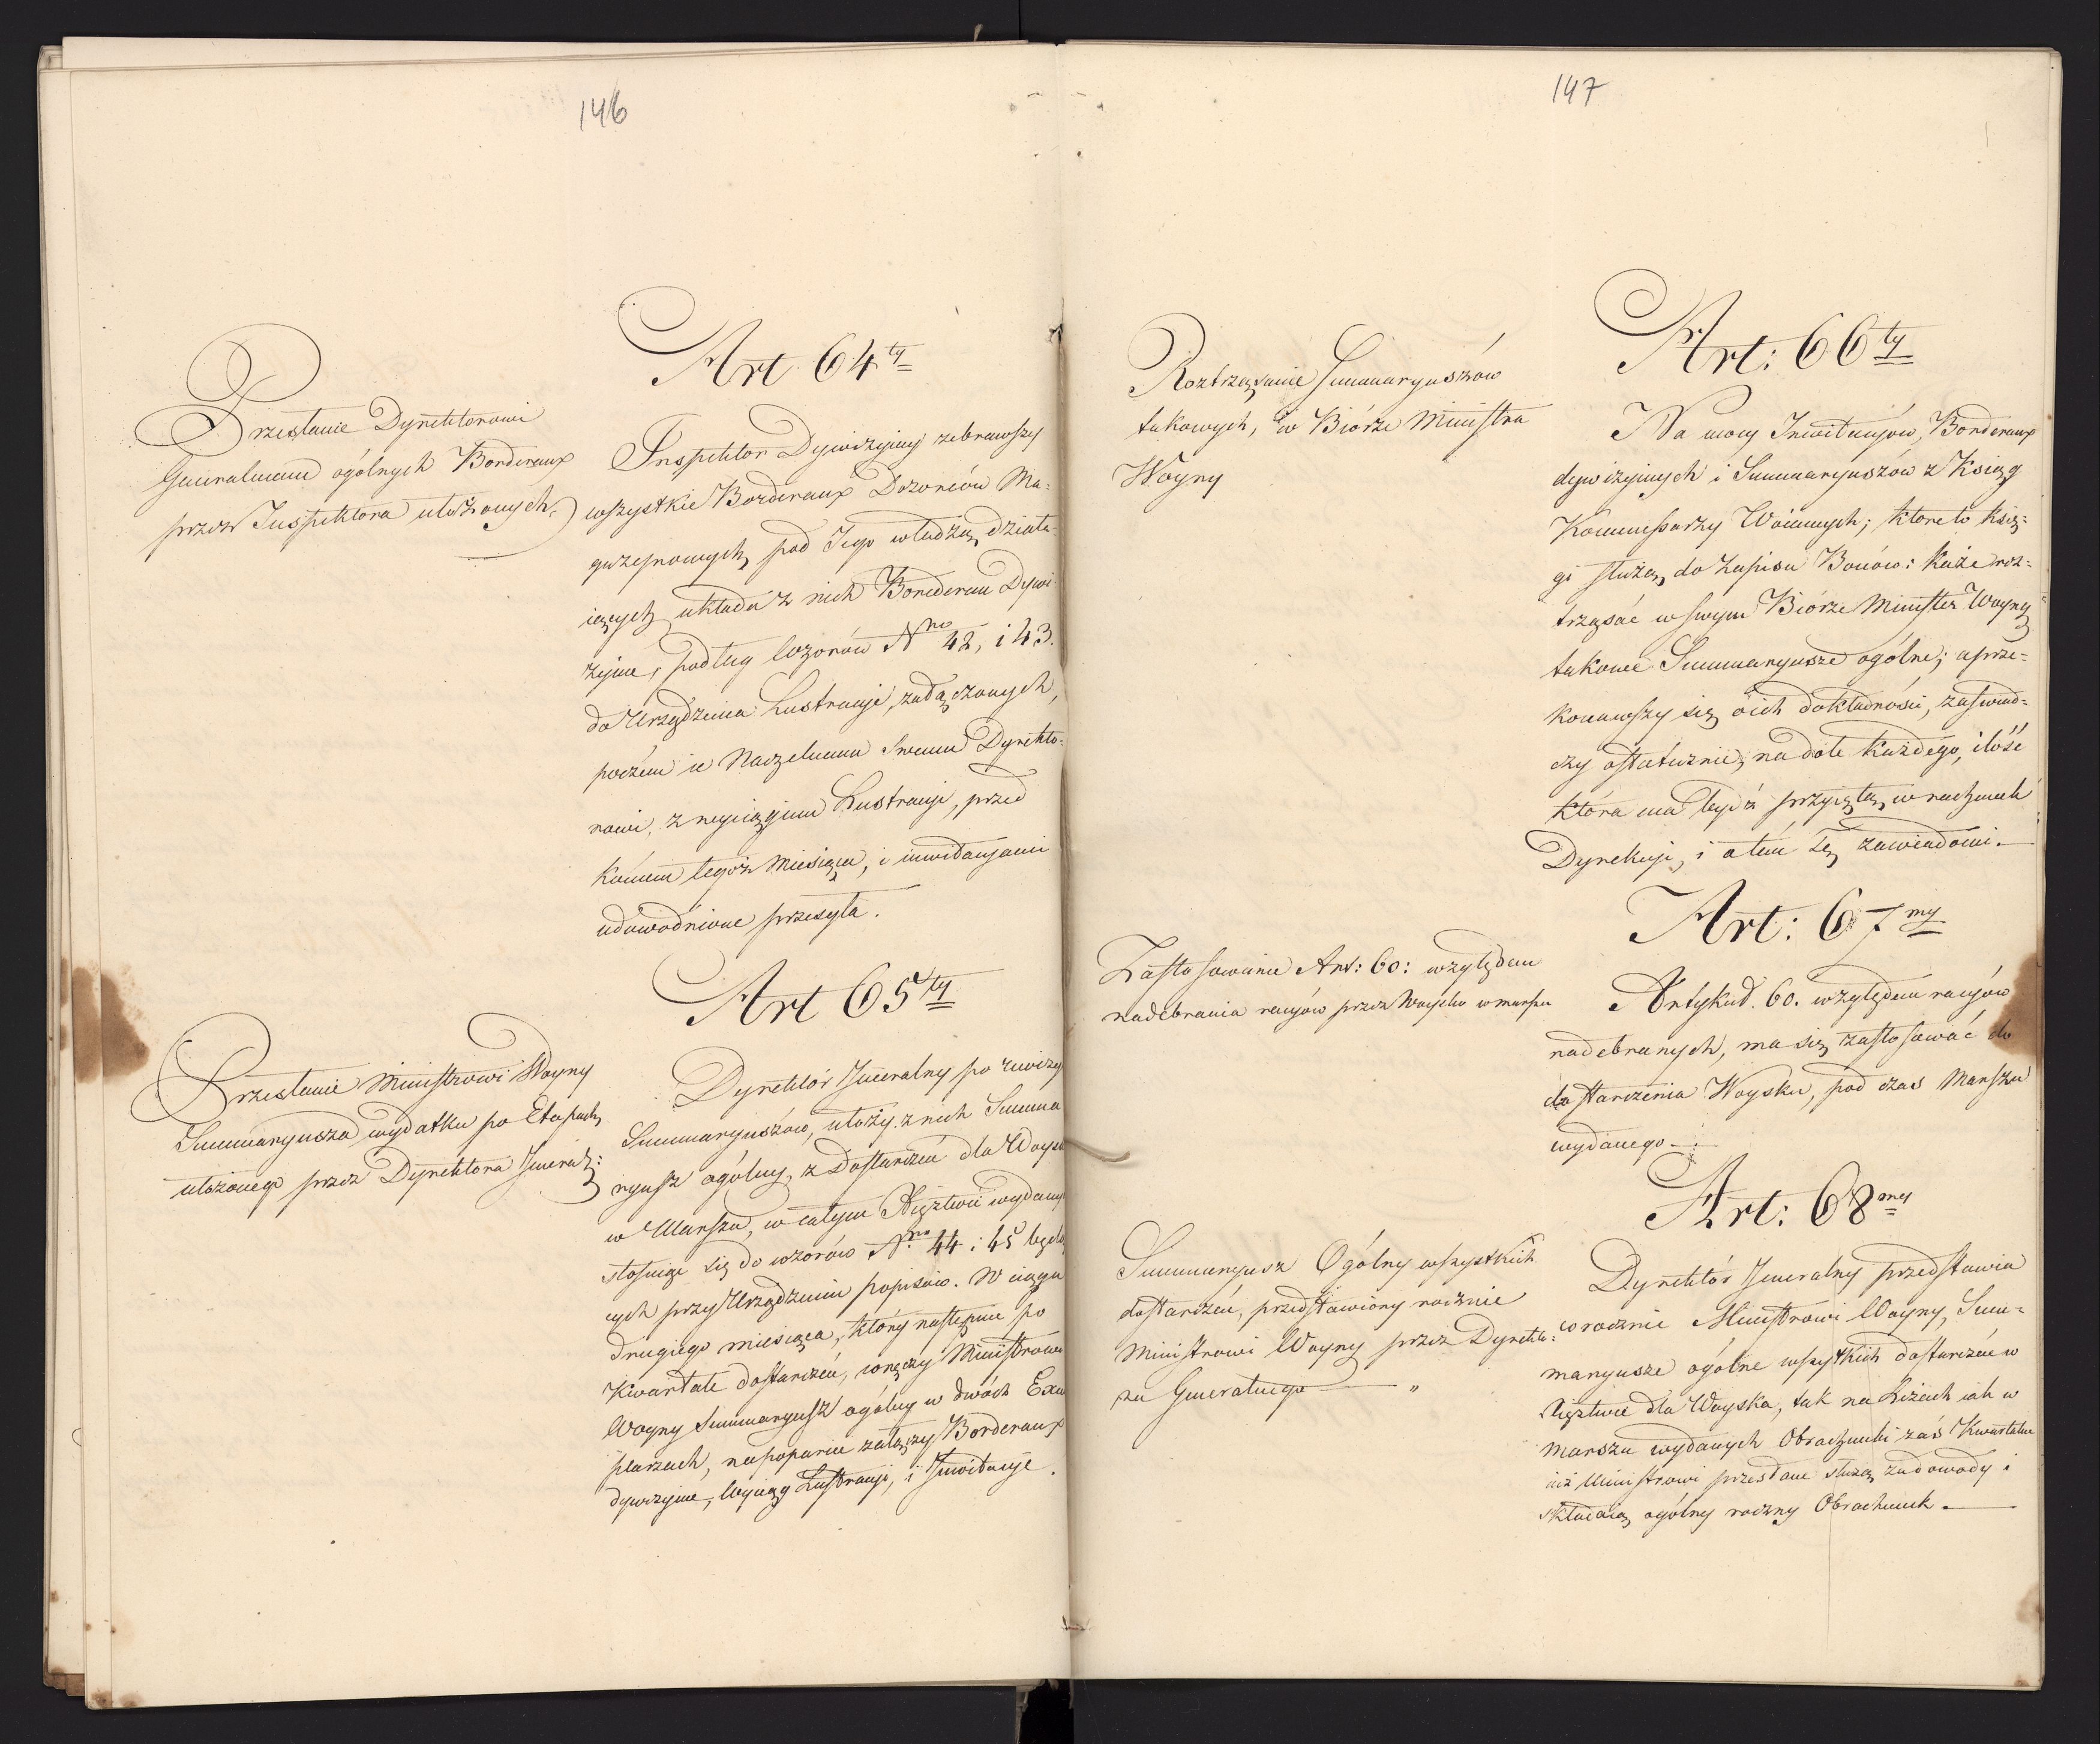 146
Art 64ty
Przesłanie Dyrektorowi
Generalnemu ogólnych Borderaux
przez Inspektora ułożonych.
Inspektor Dywizyiny zebrawszy
wszystkie Borderaux Dozorców Ma-
gazynowych, pod Jego władzą działa-
iących układa z nich Borderau Dywi-
zyine, podług wzorów Nro 42, i 43.
do Urządzenia Lustracyi, załączonych,
poczém ie Naczelnemu swemu Dyrekto-
rowi, z wyciągiem Lustracyi, przed
końcem tegóż Miesiąca, i inwitacyami
udowodnione przesyła.
Art 65ty
Przesłanie Ministrowi Woyny
Summaryusza wydatku po Etapach,
ułożonego przez Dyrektora Jeneral:
Dyrektór Jeneralny po rewizyi
Summaryuszów, ułoży z nich Summa
ryusz ogólny, z Dostarczeń dla Woysk
w Marszu, w całym Xięztwie wydanych
stosuiąc się do wzorów Nro 44 i 45 będą
cych przy Urządzeniu popisów. W ciągu
drugiego miesiąca, który nastąpi po
Kwartale dostarczeń, wręczy Ministrowi
Woyny Summaryusz ogólny w dwóch Exem
plarzach, na poparcie załączy Borderaux
dywizyine, Wyciąg Lustracyi, i Inwitacyje.
147
Art: 66ty
Roztrząsanie Summaryuszów
takowych, w Biórze Ministra
Woyny
Na mocy Inwitacyjów, Borderaux
dywizyinych i Summaryuszów z Ksiąg
Kommissarzy Woiennych; które to Księ-
gi służą do Zapisu Bonów: każe roz-
trząsać w swym Biórze Minister Woyny
takowe Summaryusze ogólne; a prze-
konawszy się o ich dokładności, zaświad-
czy ostatecznie, na dole każdego, ilość
która ma bydź przyięta w rachunek
Dyrekcyi, i o tém ią zawiadomi.
Art: 67my
Zastosowanie Art: 60: względem
nadebrania racyów przez Woysko w marszu
Artykuł. 60. względem racyów
nadebranych, ma się zastosować do
dostarczenia Woysku, pod czas Marszu
wydanego
Art: 68my
Summaryusz Ogólny wszystkich
dostarczeń, przedstawiony rocznie
Ministrowi Woyny przez Dyrekto-
ra Generalnego
Dyrektór Jeneralny przedstawia
corocznie Ministrowi Woyny, Sum-
maryusze ogólne wszystkich dostarczeń w
Xięztwie dla Woyska, tak na Leżach iak w
marszu wydanych Obrachunki zaś Kwartalne
iuż Ministrowi przesłane służą za dowody i
składaią ogólny roczny Obrachunek.